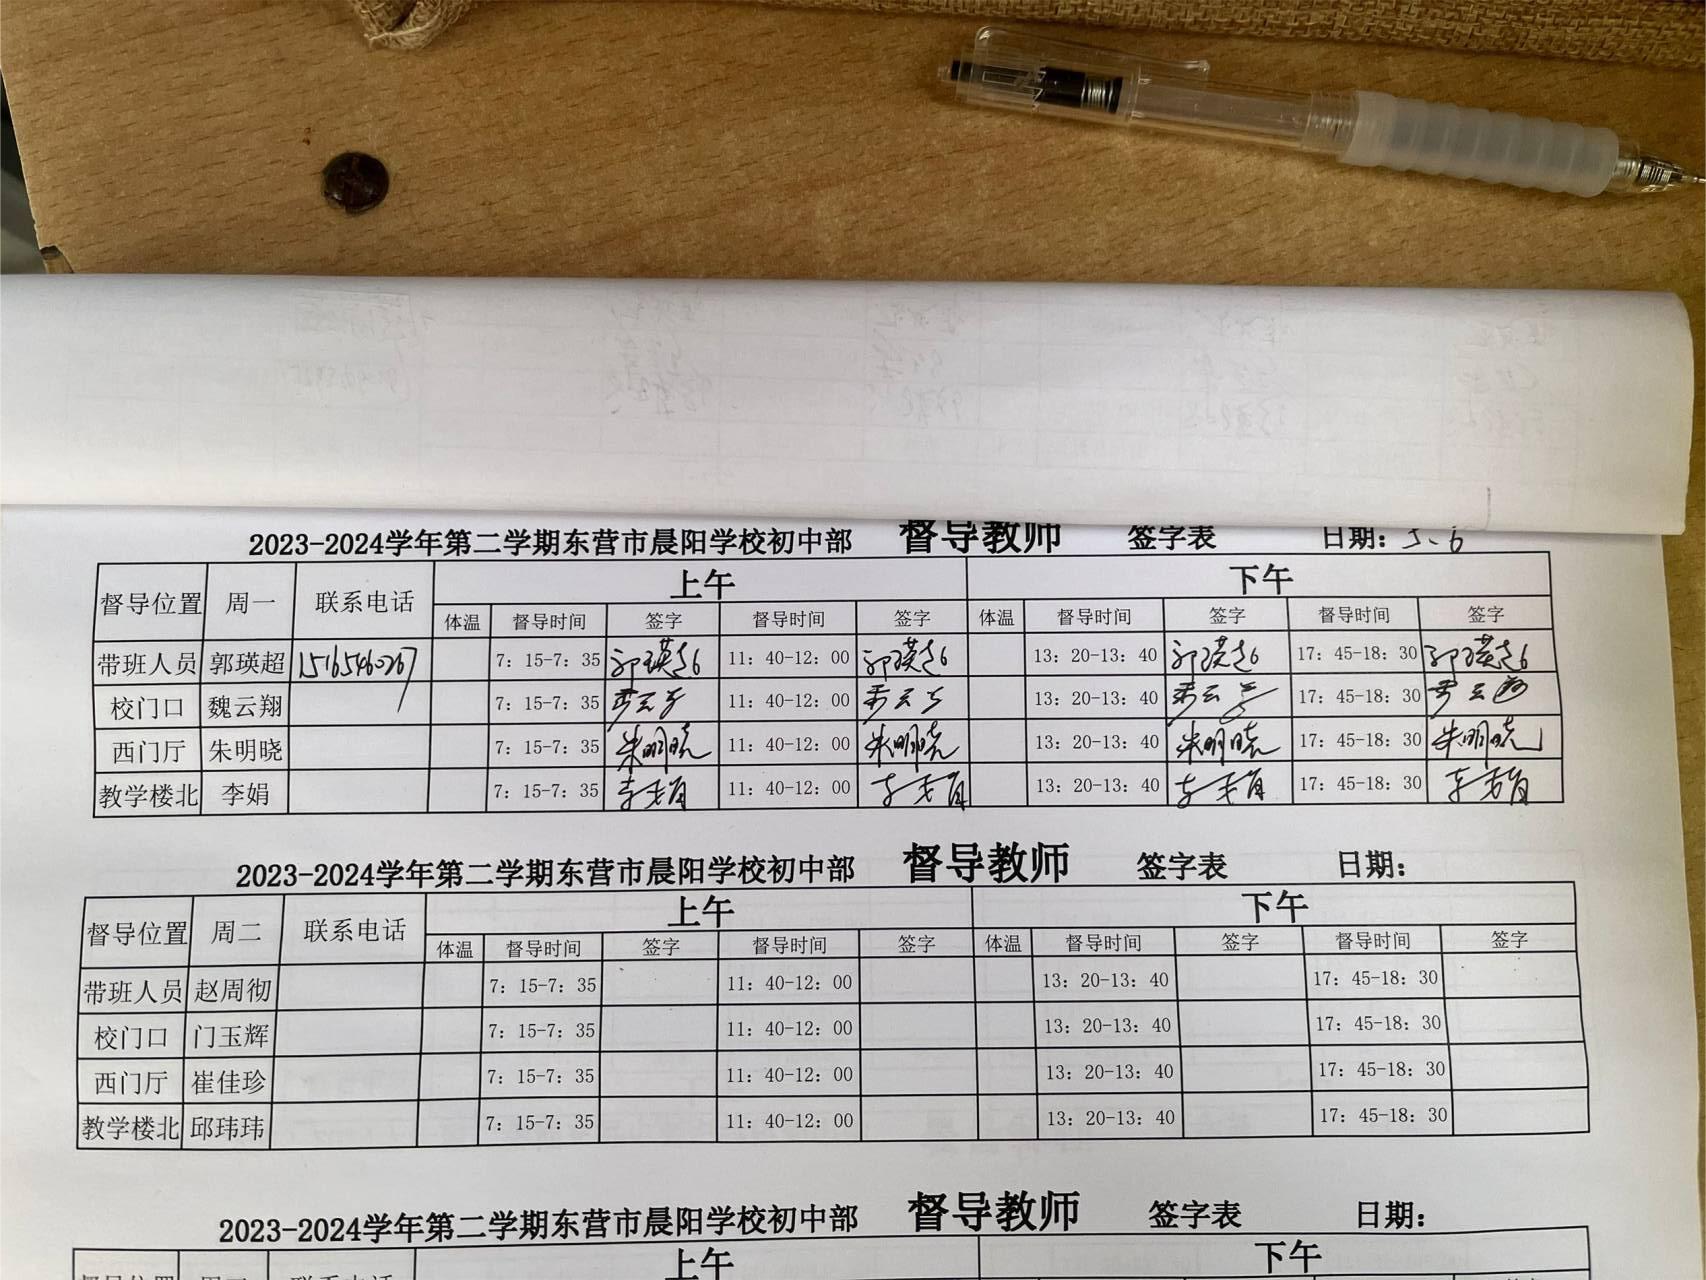 2023-2024学年第二学期东营市晨阳学校初中部 督导教师 签字表 日期: 5.6
督导位置 周一 联系电话 上午 下午
体温 督导时间 签字 督导时间 签字 体温 督导时间 签字 督导时间 签字
带班人员 郭瑛超 7: 15-7: 35 郭瑛超 11: 40-12: 00 郭瑛超 13: 20-13: 40 郭瑛超 17: 45-18: 30 郭瑛超
校门口 魏云翔 7: 15-7: 35 11: 40-12: 00 13: 20-13: 40 17: 45-18: 30
西门厅 朱明晓 7: 15-7: 35 朱明晓 11: 40-12: 00 朱明晓 13: 20-13: 40 朱明晓 17: 45-18: 30 朱明晓
教学楼北 李娟 7: 15-7: 35 11: 40-12: 00 13: 20-13: 40 17: 45-18: 30
2023-2024学年第二学期东营市晨阳学校初中部 督导教师 签字表 日期:
督导位置 周二 联系电话 上午 下午
体温 督导时间 签字 督导时间 签字 体温 督导时间 签字 督导时间 签字
带班人员 赵周彻 7: 15-7: 35 11: 40-12: 00 13: 20-13: 40 17: 45-18: 30
校门口 门玉辉 7: 15-7: 35 11: 40-12: 00 13: 20-13: 40 17: 45-18: 30
西门厅 崔佳珍 7: 15-7: 35 11: 40-12: 00 13: 20-13: 40 17: 45-18: 30
教学楼北 邱玮玮 7: 15-7: 35 11: 40-12: 00 13: 20-13: 40 17: 45-18: 30
2023-2024学年第二学期东营市晨阳学校初中部 督导教师 签字表 日期:
上午 下午